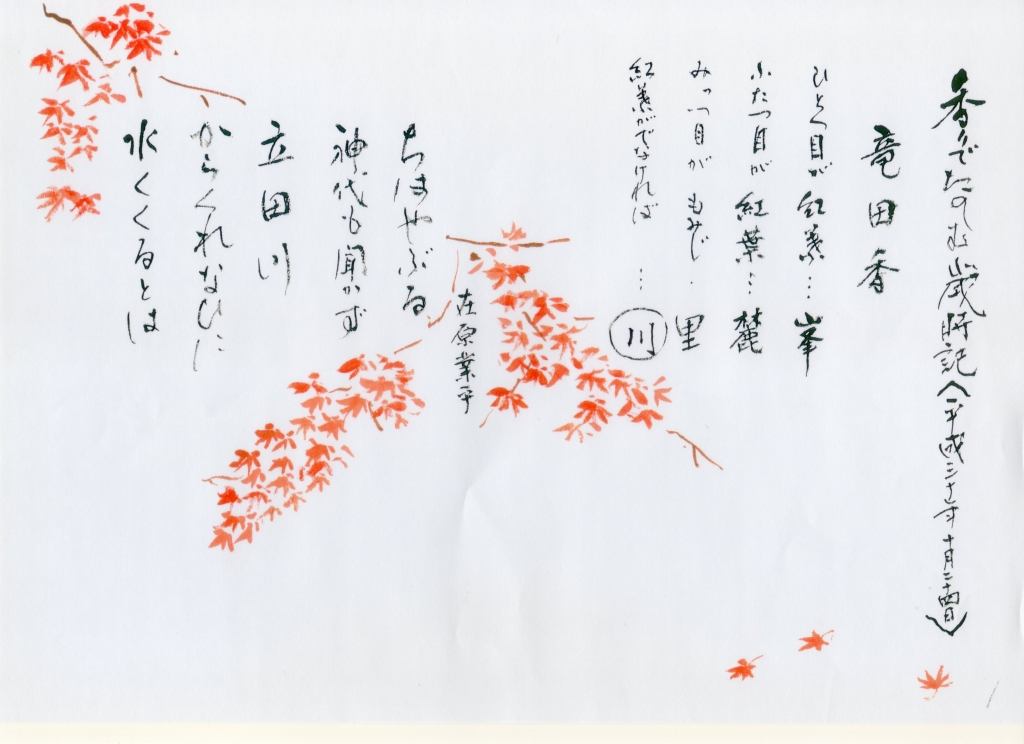 香りでたのしむ歳時記〈平成三十年十月二十四日〉
竜田香
ひとつ目が紅葉…峯
ふたつ目が紅葉…麓
みっつ目がもみじ…里
紅葉がでなければ…川
在原業平
ちはやぶる
神代も聞かず
立田川
からくれなひに
水くくるとは